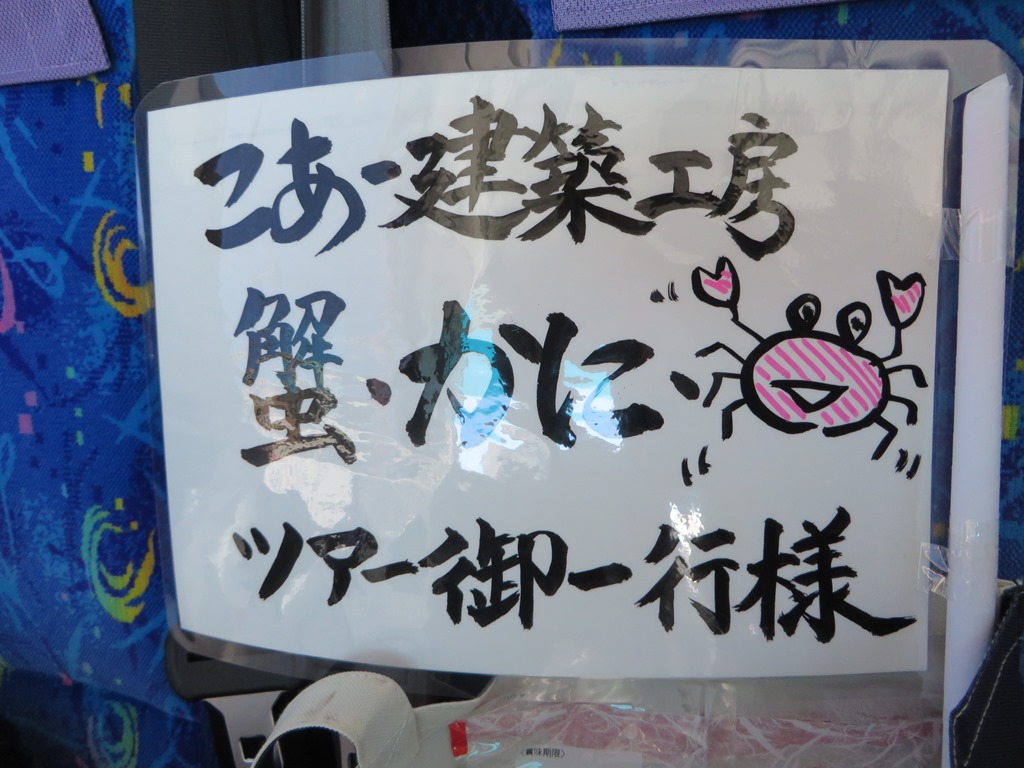 こあ・建築工房
蟹・かに・
ツアー御一行様
賞味期限